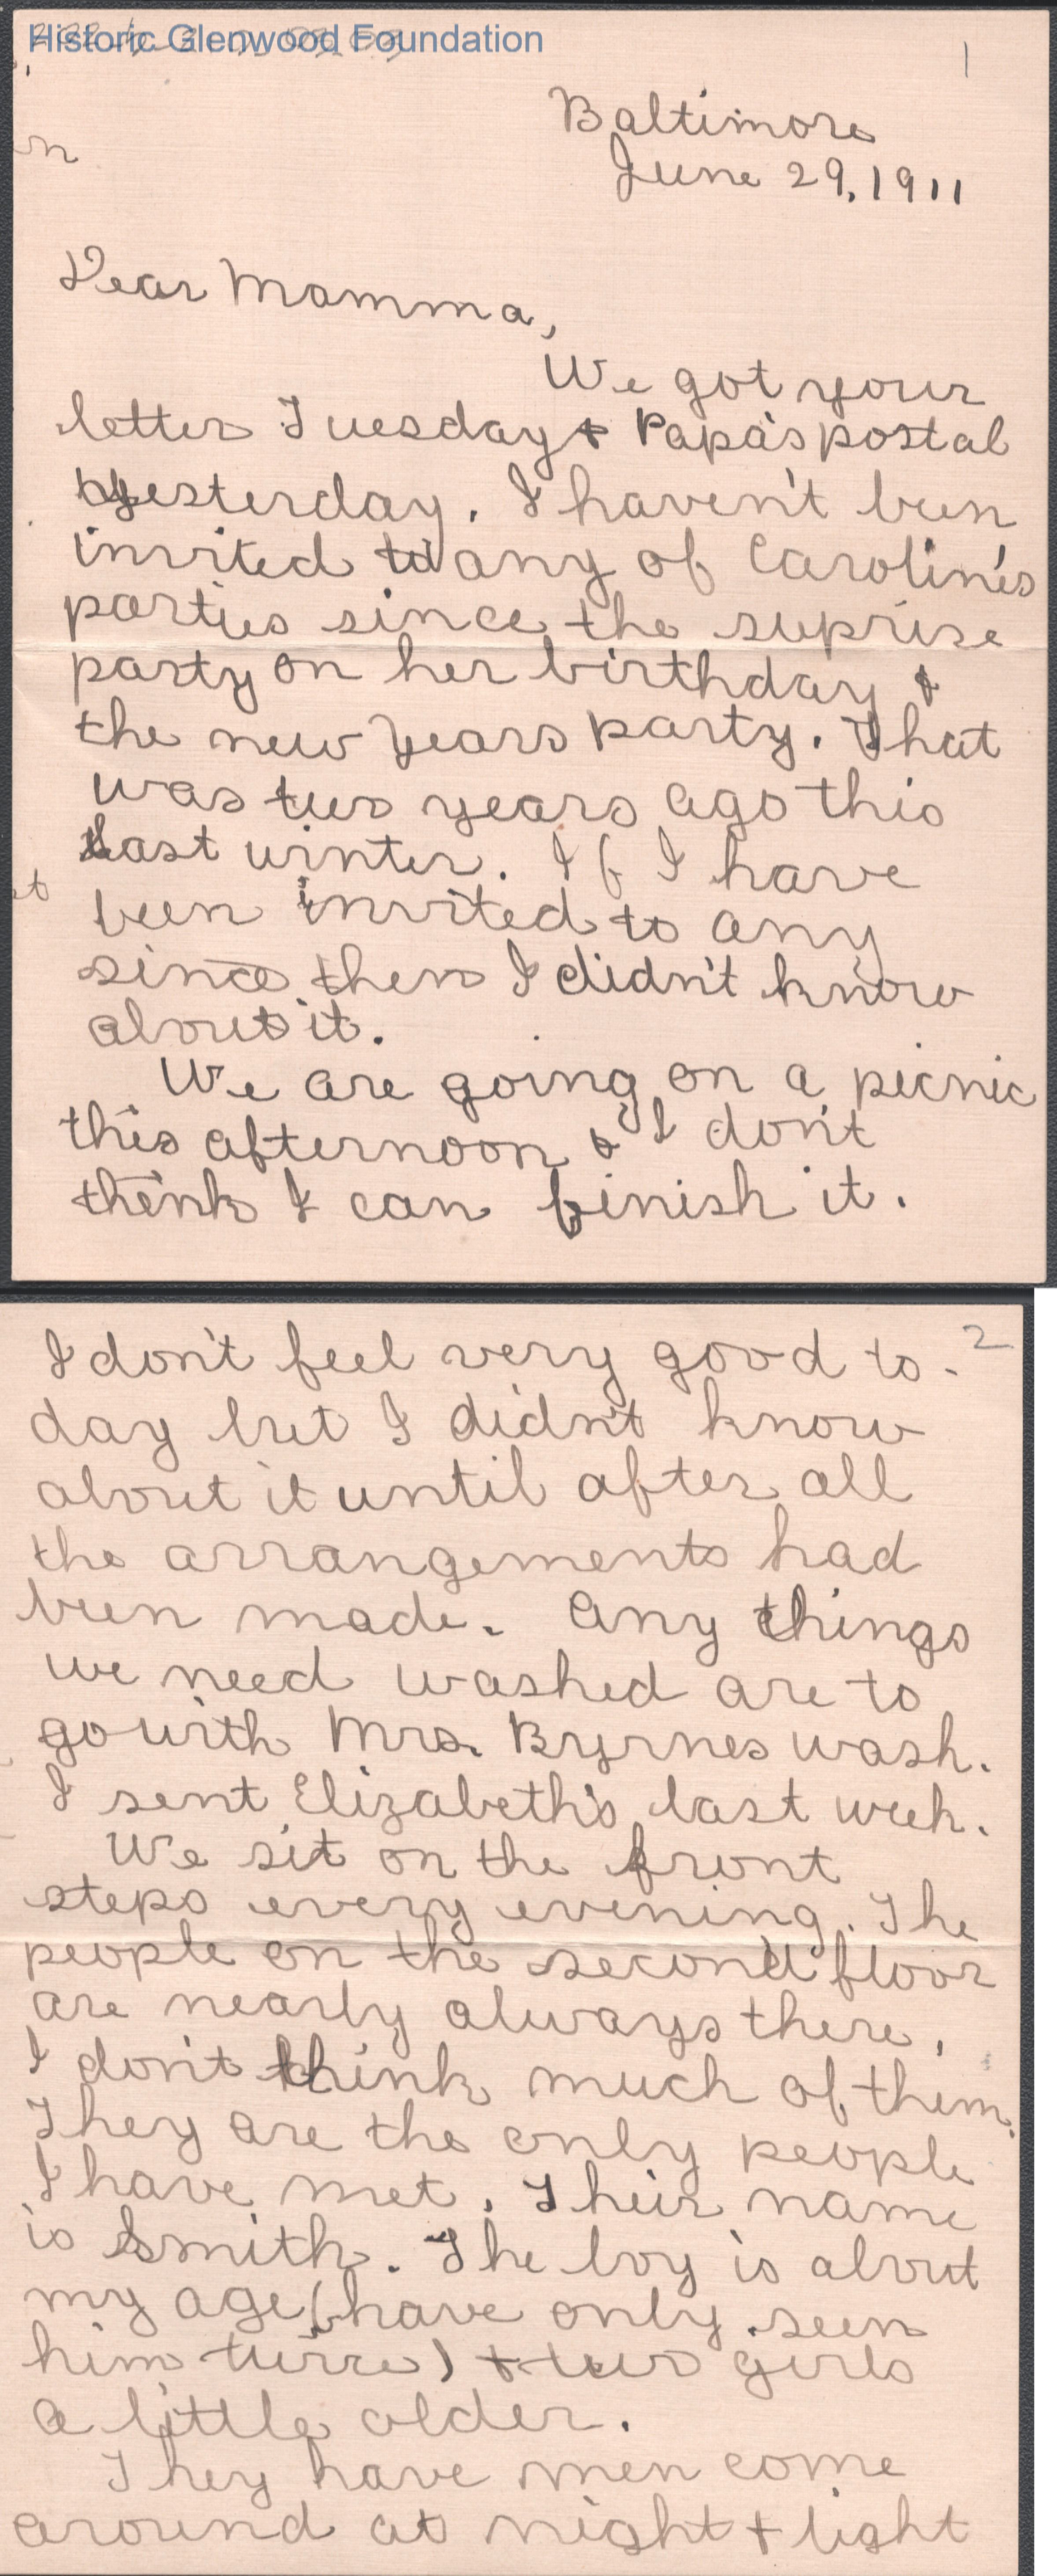 Historic Glenwood Foundation
1
n
Baltimore
June 29, 1911
Dear Mamma,
We got your
letter Tuesday & Papa's postal
yesterday. I haven't been
invited to any of Caroline's
parties since the suprise
party on her birthday &
the new years party. That
was two years ago this
last winter. If I have
been invited to any
since then I didn't know
about it.
We are going on a picnic
this afternoon & I don't
think I can finish it.
2
I don't feel very good to-
day but I didn't know
about it until after all
the arrangements had
been made. Any things
we need washed are to
go with Mrs. Byrnes wash.
I sent Elizabeth's last week.
We sit on the front
steps every evening. The
people on the second floor
are nearly always there.
I don't think much of them.
They are the only people
I have met. Their name
is Smith. The boy is about
my age (have only seen
him twice) & two girls
a little older.
They have men come
around at night & light